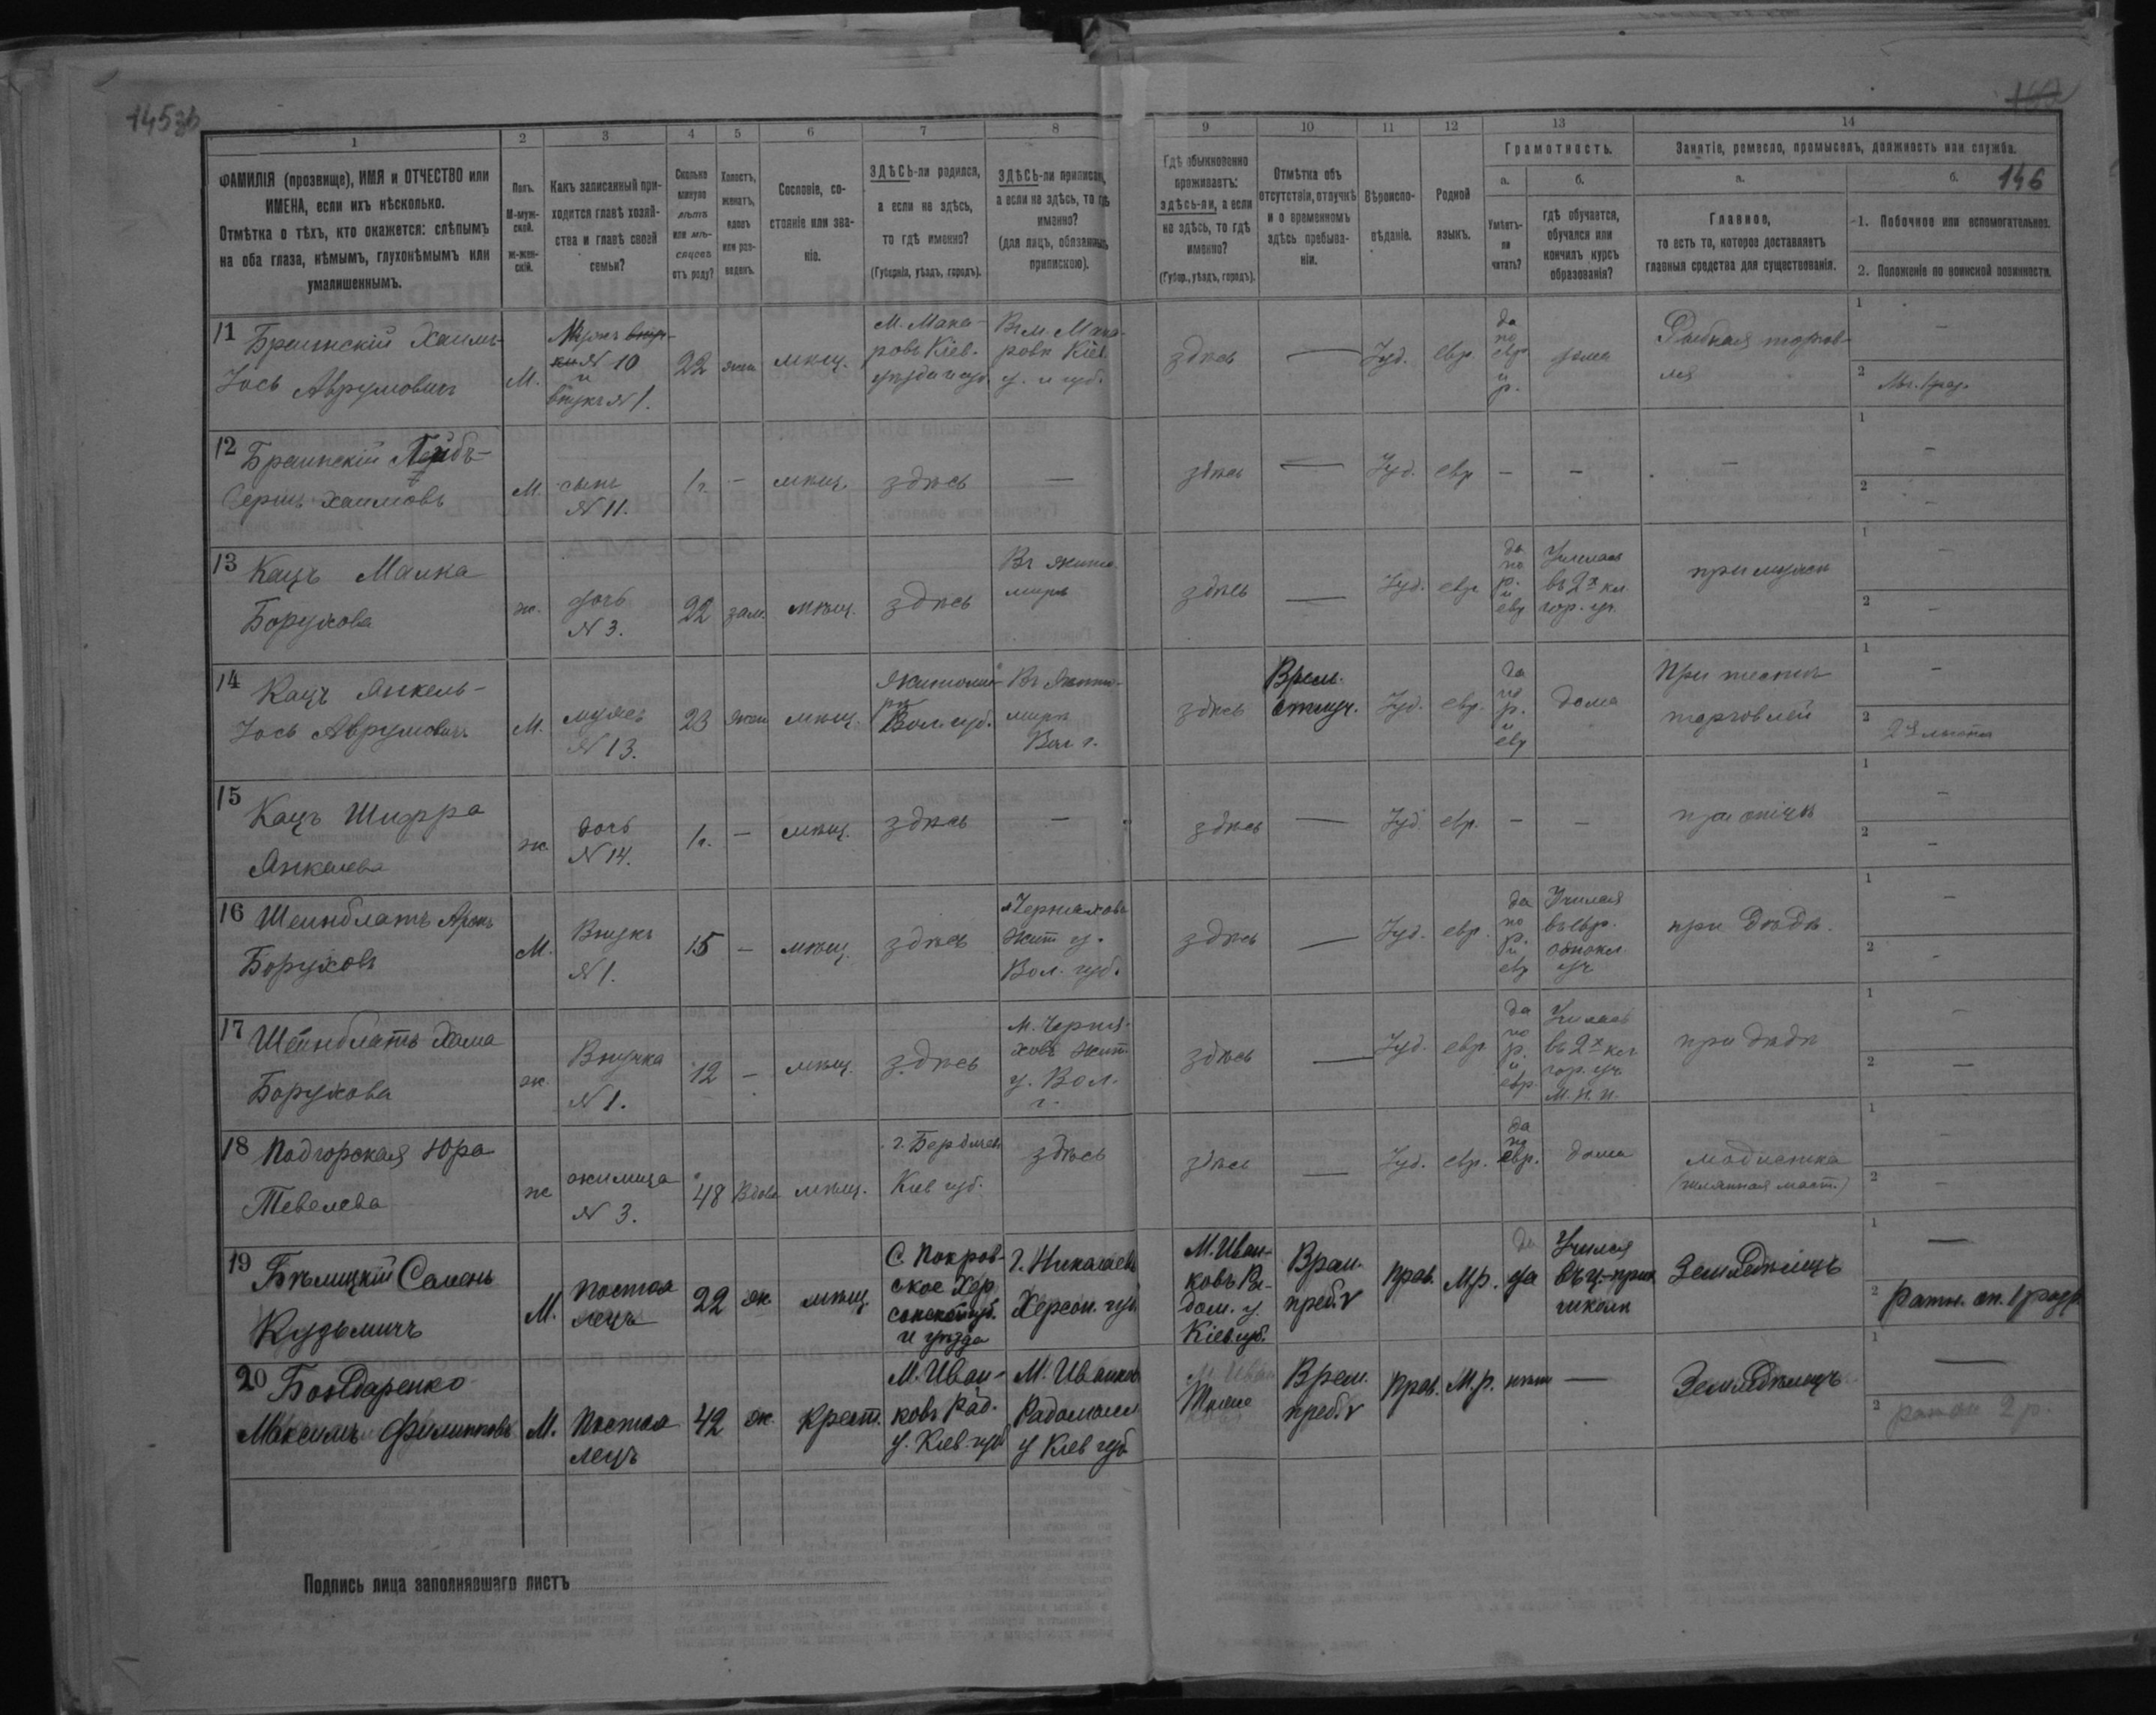 145об
146
1 2 3 4 5 6 7 8 9 10 11 12 13 14
ФАМИЛІЯ (прозвище), ИМЯ и ОТЧЕСТВО или
ИМЕНА, если ихъ нѣсколько.
Отмѣтка о тѣхъ, кто окажется: слѣпымъ
на оба глаза, нѣмымъ, глухонѣмымъ или
умалишеннымъ.
Полъ.
М-муж-
ской.
Ж-жен-
скій.
Какъ записанный при-
ходится главѣ хозяй-
ства и главѣ своей
семьи?
Сколько
минуло
лѣтъ
или мѣ-
сяцевъ
отъ роду?
Холостъ,
женатъ,
вдовъ
или раз-
веденъ.
Сословіе, со-
стояніе или зва-
ніе.
ЗДѢСЬ-ли родился,
а если не здѣсь,
то гдѣ именно?
(Губернія, уѣздъ, городъ).
ЗДѢСЬ-ли приписанъ,
а если не здѣсь, то гдѣ
именно?
(для лицъ, обязанныхъ
припискою).
Гдѣ обыкновенно
проживаетъ:
здѣсь-ли, а если
не здѣсь, то гдѣ
именно?
(Губер., уѣздъ, городъ).
Отмѣтка объ
отсутствіи, отлучкѣ
и о временномъ
здѣсь пребыва-
ніи.
Вѣроиспо-
вѣданіе.
Родной
языкъ.
Грамотность.
а.
Умѣетъ-
ли
читать?
б.
гдѣ обучается,
обучался или
кончилъ курсъ
образованія?
Занятіе, ремесло, промыселъ, должность или служба.
а.
Главное,
то есть то, которое доставляетъ
главныя средства для существованія.
б.
1. Побочное или вспомогательное.
2. Положеніе по воинской повинности.
11 Браинскій Хаимъ-
Іось Аврумовичъ
М.
Мужъ
N 10
и
внукъ N 1.
22
жен
мѣщ.
М. Мака-
ровъ Кіев.
уѣзда и губ.
Въ м. Мака-
ровѣ Кіев.
у. и губ.
здѣсь
—
Іуд.
евр
да
по
евр
и
р.
дома
Рыбная торгов-
ля
1 —
2
12 Браинскій
Хаимовъ
М.
сынъ
N 11.
1 г.
—
мѣщ.
здѣсь
—
здѣсь
—
Іуд.
евр
—
—
—
1 —
2 —
13 Кацъ Малка
Борухова
ж.
дочь
N 3.
22
зам.
мѣщ.
здѣсь
Въ Жито-
мирѣ
здѣсь
—
Іуд.
евр
да
по
р.
и
евр
Училась
въ 2х кл.
гор. уч.
при мужѣ
1 —
2 —
14 Кацъ Янкель-
Іось Аврумовичъ
М.
мужъ
N 13.
23
жен
мѣщ.
Житоми-
рѣ
Вол. губ.
Въ Жито-
мирѣ
Вол. г.
здѣсь
Врем.
отлуч.
Іуд.
евр.
да
по
р.
и
евр
дома
При тестѣ
торговлей
1 —
2
15
Кацъ Шифра
Янкелева
ж
дочь
N 14.
1 г.
—
мѣщ.
здѣсь
—
здѣсь
—
Іуд
евр.
—
—
при отцѣ
1 —
2 —
16 Шеинблатъ Аронъ
Боруховъ
М.
Внукъ
N 1.
15
—
мѣщ.
здѣсь
м Черняховъ
Жит у.
Вол. губ.
здѣсь
—
Іуд.
евр.
да
по
р.
и
евр
Учился
въ евр.
однокл.
уч
при дѣдѣ.
1 —
2 —
17 Шеинблатъ Хама
Борухова
ж.
Внучка
N 1.
12
—
мѣщ.
здѣсь
М. Черня-
ховъ Жит.
у. Вол.
г.
здѣсь
—
Іуд.
евр
да
по
р.
и
евр.
Училась
въ 2х кл
гор. уч.
М. Н. П.
при дѣдѣ
1 —
2 —
18 Подгорская Юра
Тевелева
ж
жилица
N 3.
48
Вдова
мѣщ.
г. Бердичев
Кіев губ.
здѣсь
здѣсь
—
Іуд.
евр.
да
по
евр.
дома
модистка
1 —
2 —
19 Бѣлицкій Семенъ
Кузьмичъ
М.
Постоя
лецъ
22
ж
мѣщ.
С. Покров-
ское Хер
сонской губ.
и уѣзда
Г. Николаевъ
Херсон. губ
М. Иван-
ковъ Ра-
дом. у.
Кіев губ.
Врем.
преб.
прав.
М.р.
да
Учился
въ ц.-прих
школѣ
Земледѣлецъ
1 —
2 ратн. оп. 1 разр
20 Бондаренко
Максимъ Филипповъ
М.
Постоя
лецъ
42
ж.
Крест.
М. Иван-
ковъ Рад.
у. Кіев. губ
М. Иванковъ
Радомысл
у Кіев губ
Тоже
Врем.
преб.
прав.
М.р.
нѣт
—
Земледѣлецъ
1 —
2 ратн 2 р.
Подпись лица заполнявшаго листъ